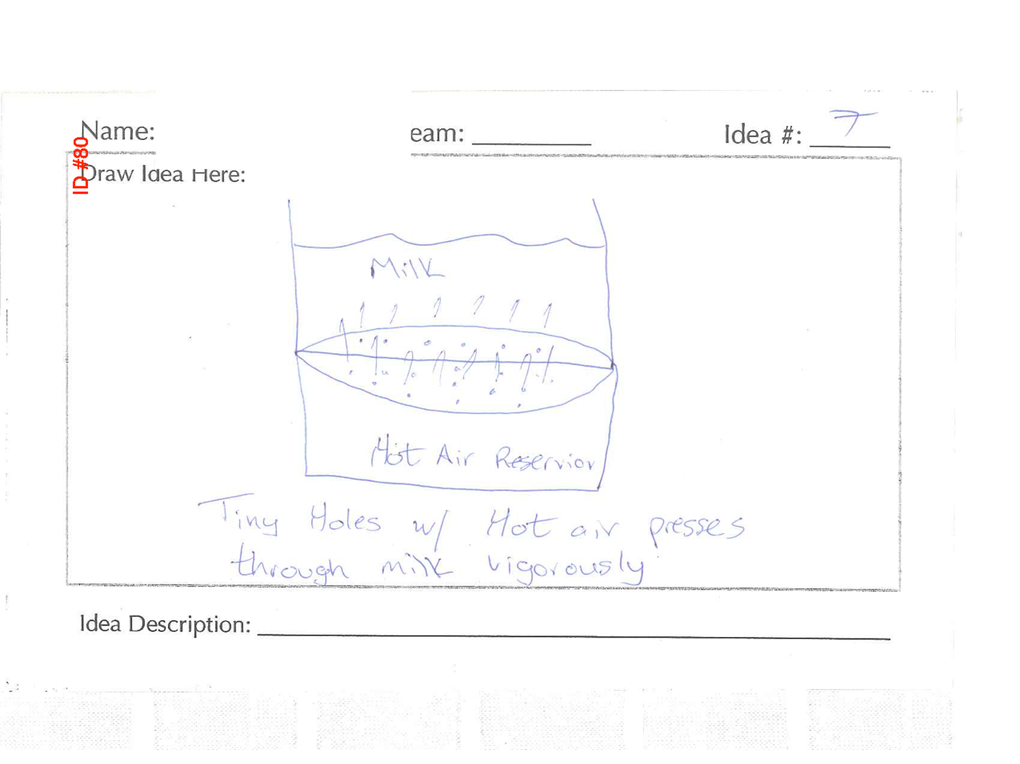 Name:
eam:
Idea #: 7
ID #80
Draw Idea Here:
Milk
Hot Air Reservior
Tiny Holes w/ Hot air presses
through milk vigorously
Idea Description: